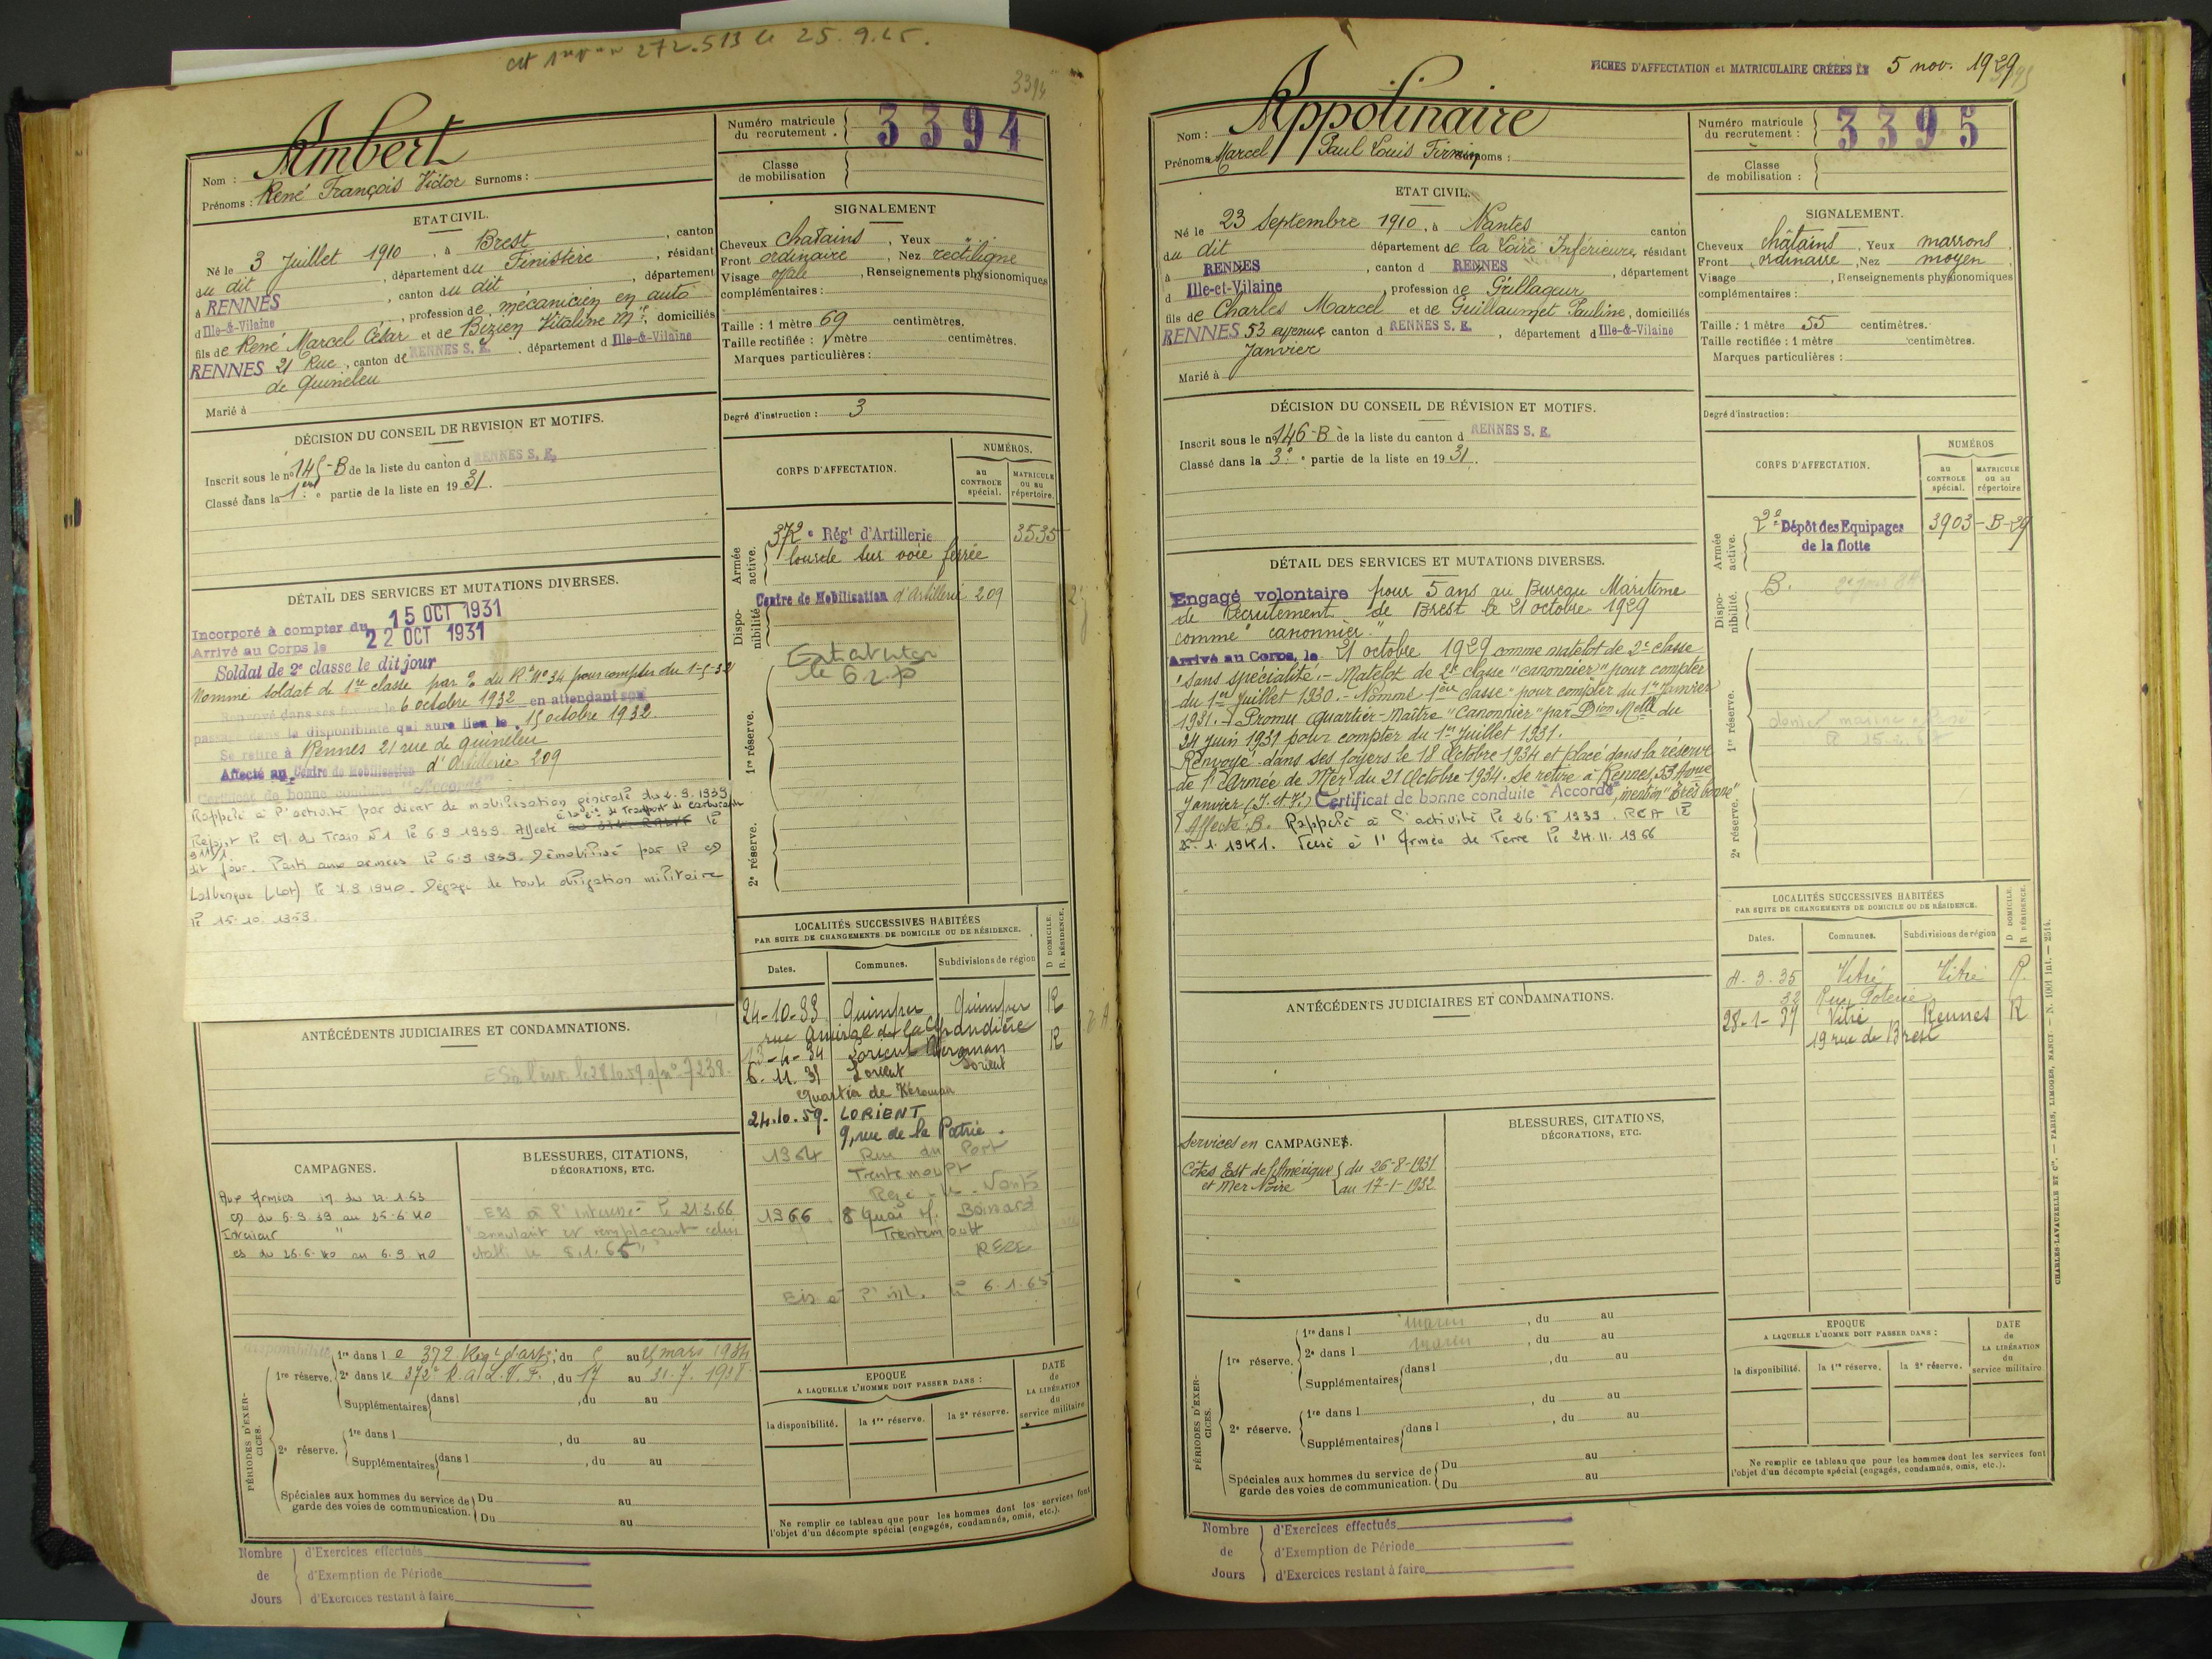 272.513 le 25.9.
3394
Ambert
Nom :
Prénoms : René François Victor Surnoms :
Numéro matricule
du recrutement . 3394
Classe
de mobilisation
ETAT CIVIL.
Né le 3 Juillet 1910 , à Brest , canton
du dit , département du Finistère , résidant
à RENNES , canton du dit , département
d Ille-&-Vilaine , profession de mécanicien en auto
fils de René Marcel César et de Bizien Vitaline Mie, domiciliés
RENNES 21 Rue , canton de RENNES S. E. , département d Ille-&-Vilaine
de Quineleu
Marié à
SIGNALEMENT
Cheveux chatains , Yeux
Front ordinaire , Nez rectiligne
Visage ovale , Renseignements physionomiques
complémentaires :
Taille : 1 mètre 69 centimètres.
Taille rectifiée : 1 mètre centimètres.
Marques particulières :
Degré d'instruction : 3
DÉCISION DU CONSEIL DE REVISION ET MOTIFS.
Inscrit sous le n° 145-B de la liste du canton d RENNES S. E.
Classé dans la 1ère partie de la liste en 1931.
CORPS D'AFFECTATION.
NUMÉROS.
au
CONTROLE
spécial.
MATRICULE
ou au
répertoire.
Armée
active.
372e Régt d'Artillerie 3535
lourde sur voie ferrée
Dispo-
nibilité
Centre de Mobilisation d'Artillerie 209
1re réserve.
2e réserve.
DÉTAIL DES SERVICES ET MUTATIONS DIVERSES.
Incorporé à compter du 15 OCT 1931
Arrivé au Corps le 22 OCT 1931
Soldat de 2e classe le dit jour
Nommé soldat de 1re classe par % du Rt N°34 pour compter du 1-5-32
Renvoyé dans ses foyers le 6 octobre 1932 en attendant son
passage dans la disponibilité qui aura lieu le 15 octobre 1932
Se retire à Rennes 21 rue de Quineleu
Affecté au Centre de Mobilisation d'Artillerie 209
Certificat de bonne conduite "Accordé"
Rappelé à l'activité par décret de mobilisation générale du 2.9.1939
Rejoint le CM du Train N°1 le 6.9.1939. Affecté le
dit jour. Parti aux armées le 6.9.1939. Démobilisé par le CD
Lalbenque (Lot) le 7.9.1940. Dégagé de toute obligation militaire
le 15.10.1959.
LOCALITÉS SUCCESSIVES HABITÉES
PAR SUITE DE CHANGEMENTS DE DOMICILE OU DE RÉSIDENCE.
D DOMICILE.
R. RÉSIDENCE.
Dates. Communes. Subdivisions de région
24-10-33 Quimper Quimper R
rue Amiral de la Grandière
13-4-34 Lorient R
6.11.35 Lorient Lorient
quartier de Keroman
24.10.59. LORIENT
9, rue de la Patrie.
1964 Rue du Port
Trentemoult
1966 8 Quai M. Boissard
Trentemoult
REZE
le 6.1.65
ANTÉCÉDENTS JUDICIAIRES ET CONDAMNATIONS.
CAMPAGNES.
Aux Armées
CD du 6.9.39 au 25.6.40
Intérieur
CS du 26.6.40 au 6.9.40
BLESSURES, CITATIONS,
DÉCORATIONS, ETC.
EIS à l'intéressé le 21.3.66
annulant et remplaçant celui
établi le 6.1.65"
PÉRIODES D'EXER-
CICES.
disponibilité
1re réserve.
1re dans le 372 Régt d'art; du 5 au 25 mars 1934
2e dans le 372e R.A.L.V.F. , du 17 au 31.7.1938
Supplémentaires dans l ,du au
2e réserve.
1re dans l , du au
Supplémentaires dans l , du au
Spéciales aux hommes du service de
garde des voies de communication.
Du au
Du au
EPOQUE
A LAQUELLE L'HOMME DOIT PASSER DANS :
la disponibilité. la 1re réserve. la 2e réserve.
DATE
de
LA LIBÉRATION
du
service militaire
Ne remplir ce tableau que pour les hommes dont les services font
l'objet d'un décompte spécial (engagés, condamnés, omis, etc.).
Nombre
de
Jours
d'Exercices effectués
d'Exemption de Période
d'Exercices restant à faire
FICHES D'AFFECTATION et MATRICULAIRE CRÉÉES LE 5 nov. 1929
Appolinaire
Nom :
Prénoms Marcel Paul Louis Firmin Surnoms :
Numéro matricule
du recrutement : 3395
Classe
de mobilisation :
ETAT CIVIL.
Né le 23 Septembre 1910 , à Nantes canton
du dit département de la Loire Inférieure, résidant
à RENNES , canton d RENNES , département
d Ille-et-Vilaine , profession de Grillageur
fils de Charles Marcel et de Guillaumet Pauline, domiciliés
RENNES 53 avenue canton d RENNES S. E. , département d Ille-&-Vilaine
Janvier
Marié à
SIGNALEMENT.
Cheveux châtains , Yeux marrons
Front ordinaire , Nez moyen
Visage , Renseignements physionomiques
complémentaires :
Taille : 1 mètre 55 centimètres.
Taille rectifiée : 1 mètre centimètres.
Marques particulières :
Degré d'instruction :
DÉCISION DU CONSEIL DE RÉVISION ET MOTIFS.
Inscrit sous le n° 146-B de la liste du canton d RENNES S. E.
Classé dans la 3e partie de la liste en 1931.
CORPS D'AFFECTATION.
NUMÉROS
au
CONTROLE
spécial.
MATRICULE
ou au
répertoire
Armée
active.
2e Dépôt des Equipages 3903-B-29
de la flotte
Dispo-
nibilité.
B.
1re réserve.
2e réserve.
DÉTAIL DES SERVICES ET MUTATIONS DIVERSES.
Engagé volontaire pour 5 ans au Bureau Maritime
de Recrutement de Brest le 21 octobre 1929
comme "canonnier."
Arrivé au Corps, le 21 octobre 1929 comme matelot de 2e classe
"sans spécialité." - Matelot de 2e classe "canonnier" pour compter
du 1er Juillet 1930. - Nommé 1ère classe" pour compter du 1er Janvier
1931. - Promu Quartier-Maître "Canonnier" par Dion Melle du
24 Juin 1931 pour compter du 1er Juillet 1931.
Renvoyé dans ses foyers le 18 Octobre 1934 et placé dans la réserve
de l'Armée de Mer du 21 Octobre 1934. Se retire à Rennes, 53 Avenue
Janvier (I. et V.) Certificat de bonne conduite "Accordé", mention "très bonne"
Affecté B. Rappelé à l'activité le 26.8.1939. RCA le
1.1941. Versé à l'Armée de Terre le 24.11.1966
LOCALITÉS SUCCESSIVES HABITÉES
PAR SUITE DE CHANGEMENTS DE DOMICILE OU DE RÉSIDENCE.
D DOMICILE.
R RÉSIDENCE.
Dates. Communes. Subdivisions de région
4.3.35 Vitré Vitré R.
32 Rue Poterie
28-1-37 Vitré Rennes R
19 rue de Brest
ANTÉCÉDENTS JUDICIAIRES ET CONDAMNATIONS.
Services en CAMPAGNES.
Côtes Est de l'Amérique du 26-8-1931
et Mer Noire au 17-1-1932
BLESSURES, CITATIONS,
DÉCORATIONS, ETC.
PÉRIODES D'EXER-
CICES.
1re réserve.
1re dans l marin , du au
2e dans l marin , du au
Supplémentaires dans l , du au
2e réserve.
1re dans l , du au
Supplémentaires dans l , du au
Spéciales aux hommes du service de
garde des voies de communication.
Du au
Du au
EPOQUE
A LAQUELLE L'HOMME DOIT PASSER DANS :
la disponibilité. la 1re réserve. la 2e réserve.
DATE
de
LA LIBÉRATION
du
service militaire
Ne remplir ce tableau que pour les hommes dont les services font
l'objet d'un décompte spécial (engagés, condamnés, omis, etc.).
CHARLES-LAVAUZELLE ET Cie. — PARIS, LIMOGES, NANCY — N. 1001 int. — 2514.
Nombre
de
Jours
d'Exercices effectués
d'Exemption de Période
d'Exercices restant à faire